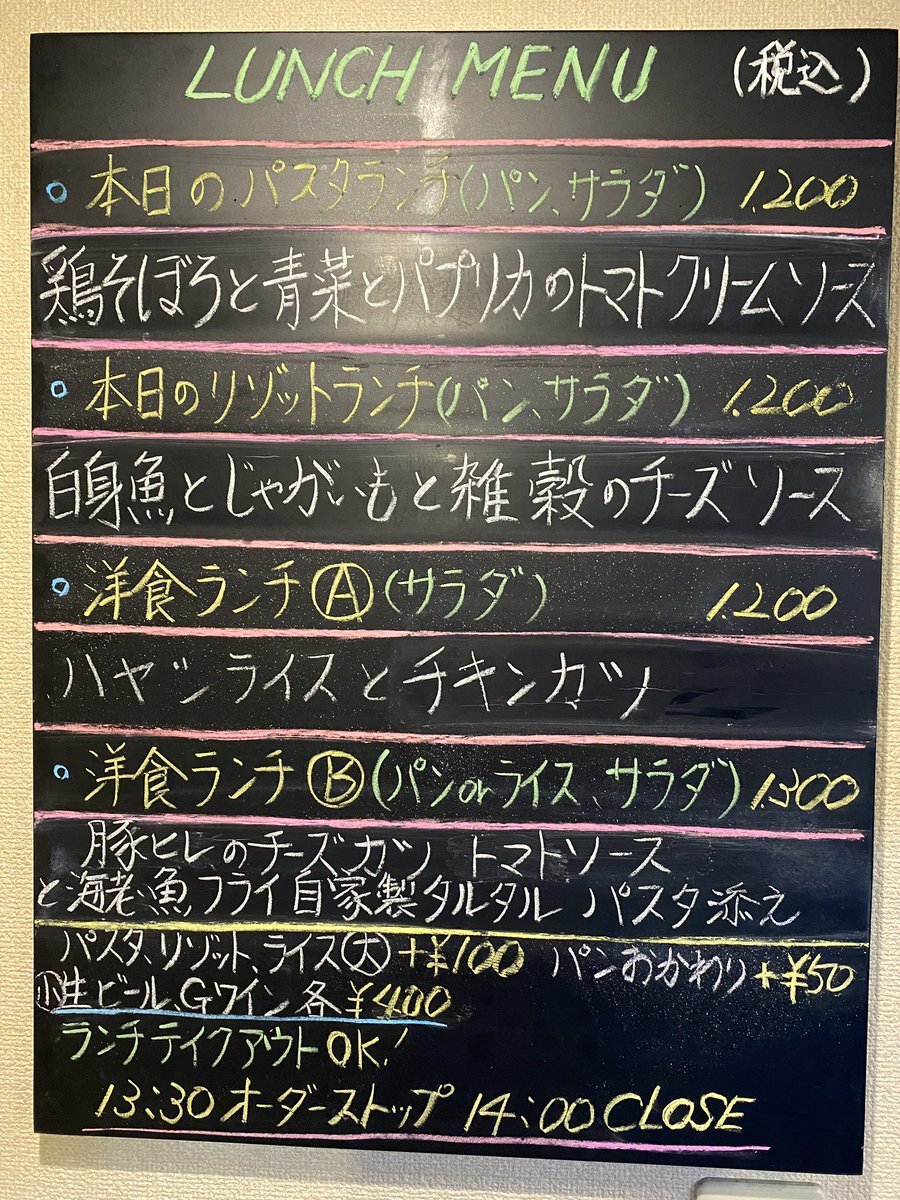 LUNCH MENU (税込)
本日のパスタランチ(パン、サラダ) 1.200
鶏そぼろと青菜とパプリカのトマトクリームソース
本日のリゾットランチ(パン、サラダ) 1.200
白身魚とじゃがいもと雑穀のチーズソース
洋食ランチⒶ(サラダ) 1.200
ハヤシライスとチキンカツ
洋食ランチⒷ(パンorライス、サラダ) 1.300
豚ヒレのチーズカツ トマトソース
と海老、魚フライ自家製タルタル パスタ添え
パスタ、リゾット、ライス(大)+¥100 パンおかわり+¥50
小生ビール、Gワイン各¥400
ランチテイクアウトOK!
13:30オーダーストップ 14:00 CLOSE